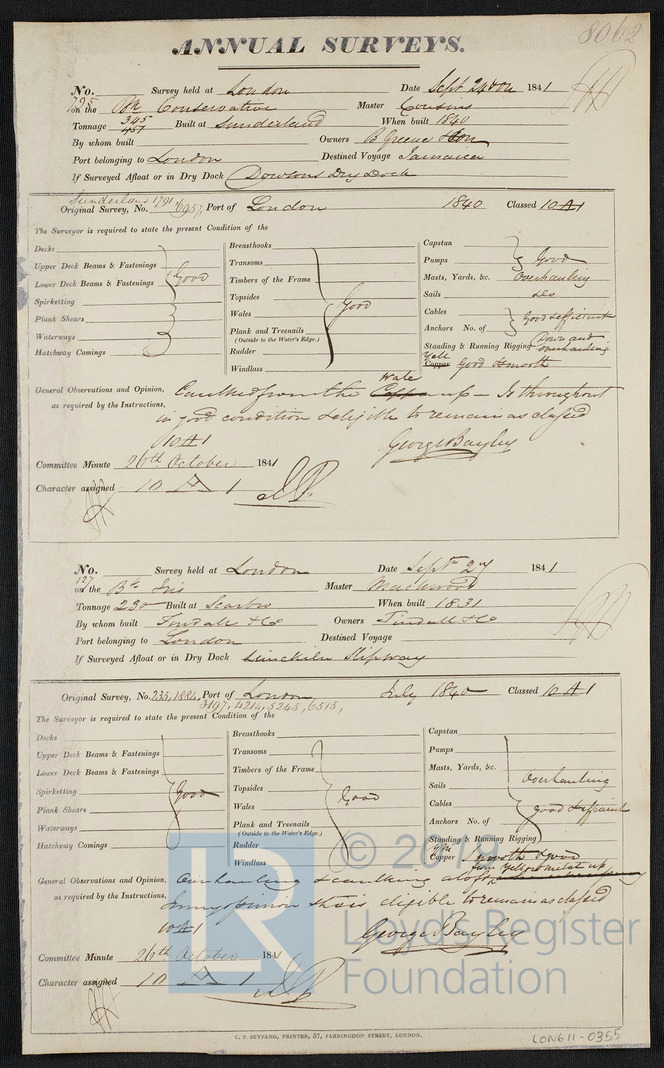 8062
ANNUAL SURVEYS.
No. 795 Survey held at London Date Sept 24 1841
on the Bk Conservative Master Cousins
Tonnage 345 457 Built at Sunderland When built 1840
By whom built Owners B Greene & Son
Port belonging to London Destined Voyage Jamaica
If Surveyed Afloat or in Dry Dock Dowsons Dry Dock
Sunderland 1791
Original Survey, No. 6957, Port of London 1840 Classed 10 A 1
The Surveyor is required to state the present Condition of the
Decks
Upper Deck Beams & Fastenings
Lower Deck Beams & Fastenings Good
Spirketting
Plank Shears
Waterways
Hatchway Comings
Breasthooks
Transoms
Timbers of the Frame
Topsides
Wales Good
Plank and Treenails
(Outside to the Water's Edge.)
Rudder
Windlass
Capstan
Pumps Good
Masts, Yards, &c. Overhauling
Sails do
Cables
Anchors No. of Good & efficient
Standing & Running Rigging Down and overhauling
Yell
Copper Good & smooth
General Observations and Opinion, Caulked from the Wale up - Is throughout
as required by the Instructions, in good condition & eligible to remain as classed
10 A 1
George Bayley
Committee Minute 26th October 1841
Character assigned 10 A 1
No. 127 Survey held at London Date Septr 27 1841
on the Bk Iris Master Mackwood
Tonnage 230 Built at Scarbro When built 1831
By whom built Tindall & Co Owners Tindall & Co
Port belonging to London Destined Voyage
If Surveyed Afloat or in Dry Dock Limekiln Slipway
Original Survey, No. 235, 1884, Port of London, July 1840 Classed 10 A 1
3197, 4214, 5245, 6515,
The Surveyor is required to state the present Condition of the
Decks
Upper Deck Beams & Fastenings
Lower Deck Beams & Fastenings
Spirketting Good
Plank Shears
Waterways
Hatchway Comings
Breasthooks
Transoms
Timbers of the Frame
Topsides
Wales Good
Plank and Treenails
(Outside to the Water's Edge.)
Rudder
Windlass
Capstan
Pumps
Masts, Yards, &c. Overhauling
Sails
Cables
Anchors No. of good & efficient
Standing & Running Rigging
Copper smooth & good
General Observations and Opinion, Overhauling & caulking aloft
as required by the Instructions, in my opinion she is eligible to remain as classed
10 A 1
George Bayley
Committee Minute 26th October 1841
Character assigned 10 A 1
C. F. SEYFANG, PRINTER, 57, FARRINGDON STREET, LONDON.
LON611-0355
© 2019
Lloyd's Register
Foundation
LR